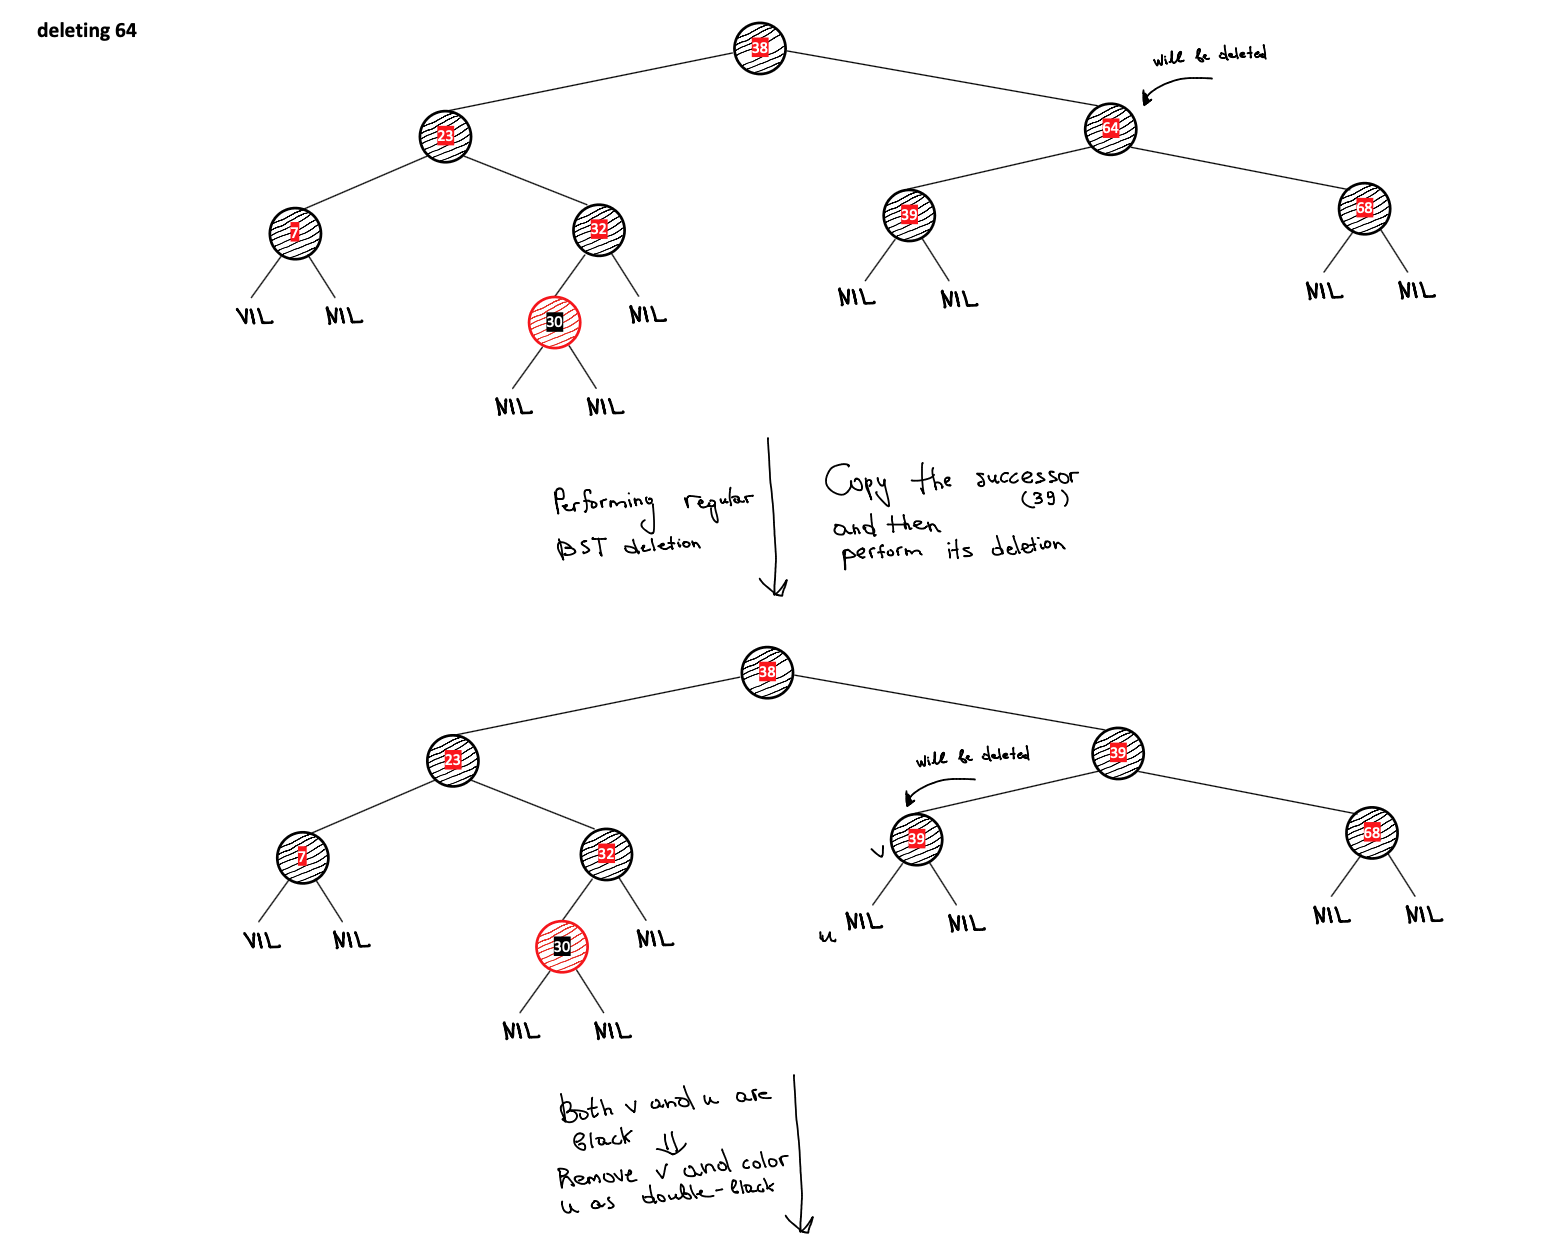 deleting 64
38
will be deleted
23
64
7
32
39
68
VIL NIL
30
NIL
NIL NIL
NIL NIL
NIL NIL
Performing regular
BST deletion
Copy the successor
(39)
and then
perform its deletion
38
23
will be deleted
39
7
32
v 39
68
VIL NIL
30
NIL
u NIL NIL
NIL NIL
NIL NIL
Both v and u are
black ⇓
Remove v and color
u as double-black